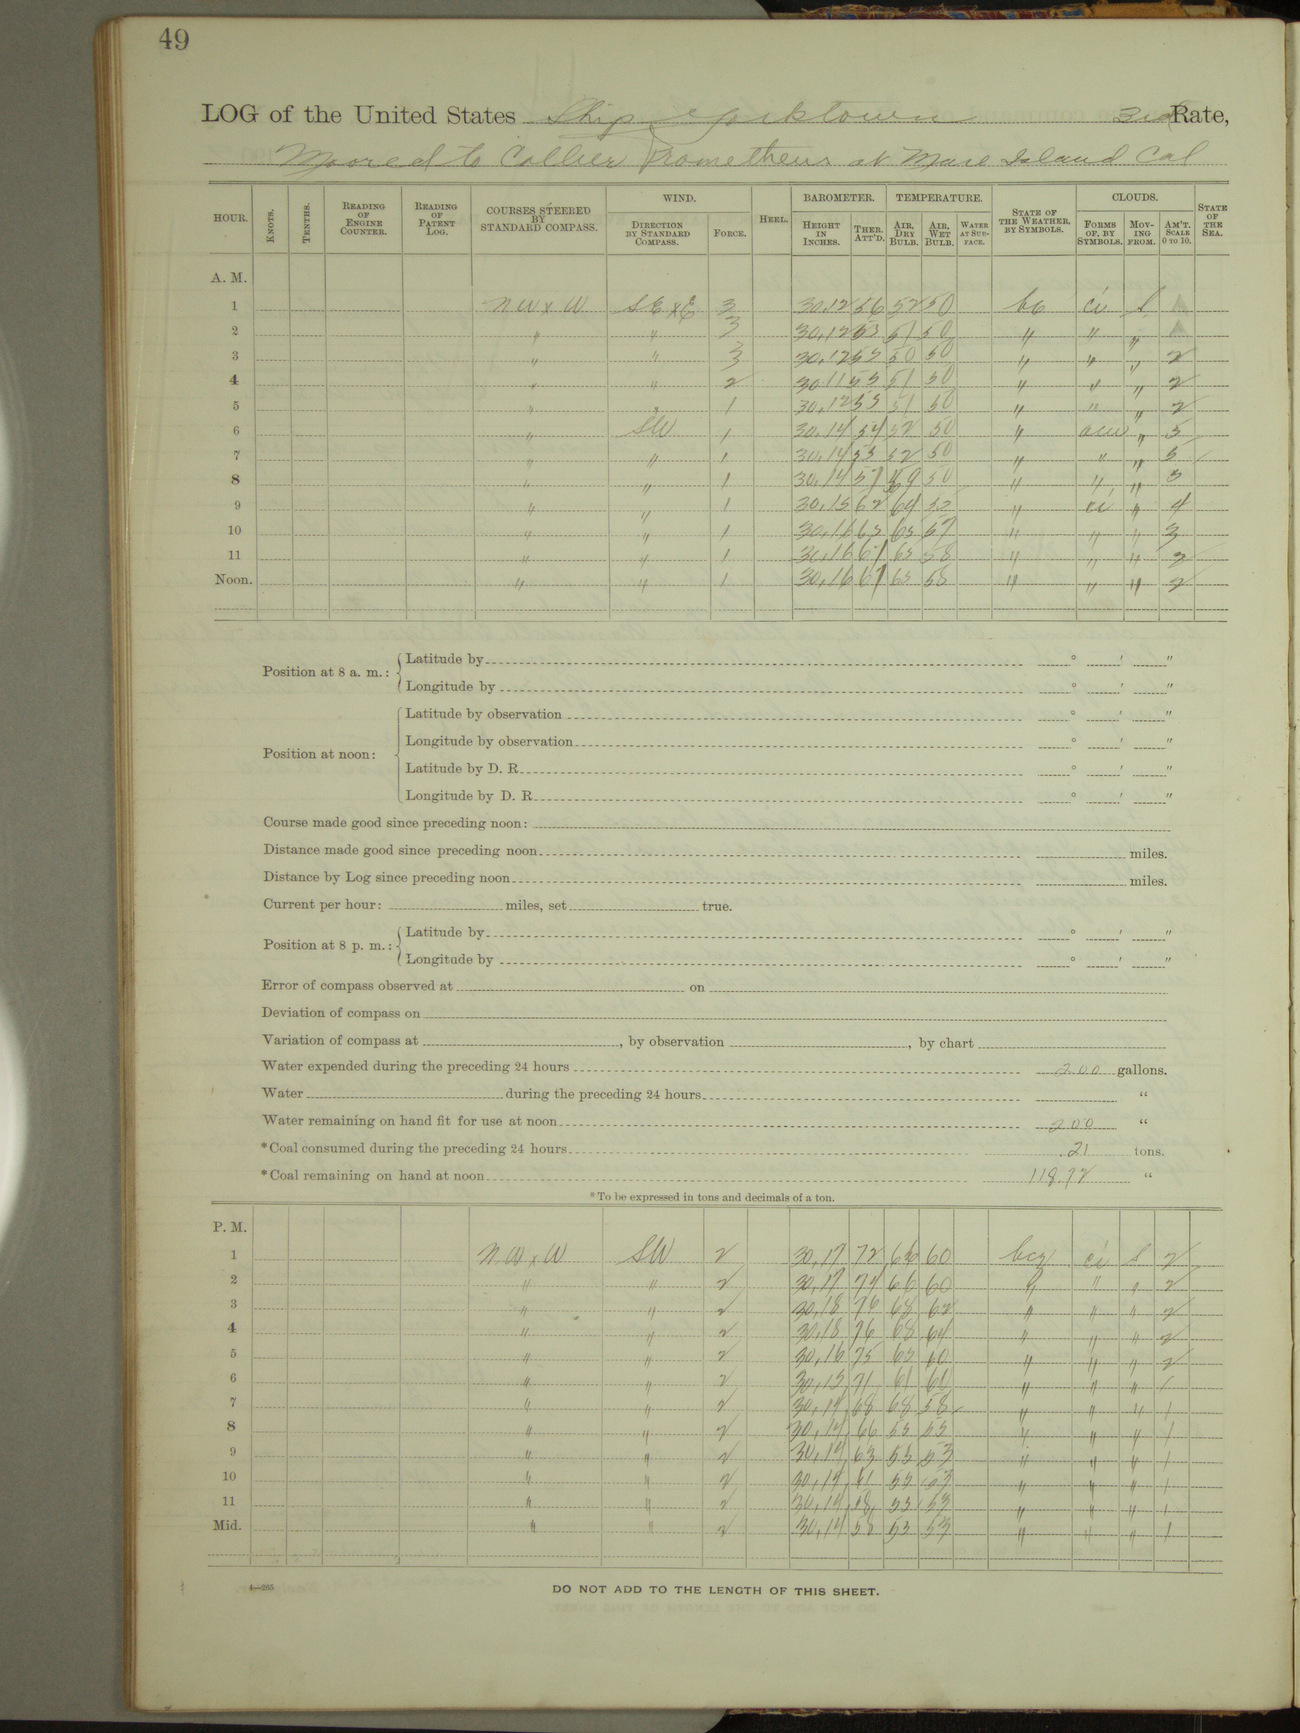 49
LOG of the United States Ship Yorktown 3rd Rate,
Moored to Collier Prometheus at Mare Island Cal
HOUR. KNOTS. TENTHS. READING OF ENGINE COUNTER. READING OF PATENT LOG. COURSES STEERED BY STANDARD COMPASS. WIND. DIRECTION BY STANDARD COMPASS. FORCE. HEEL. BAROMETER. HEIGHT IN INCHES. THER. ATT'D. TEMPERATURE. AIR, DRY BULB. AIR, WET BULB. WATER AT SURFACE. STATE OF THE WEATHER, BY SYMBOLS. CLOUDS. FORMS OF, BY SYMBOLS. MOVING FROM. AM'T. SCALE 0 TO 10. STATE OF THE SEA.
A. M.
1 NW x W SE x E 3 30,12 56 52 50 bc ci S
2 " " 3 30,12 53 51 50 " " "
3 " " 3 30,12 53 50 50 " " " 2
4 " " 2 30,11 53 51 50 " " " 2
5 " " 1 30,12 53 51 50 " " " 2
6 " SW 1 30,14 54 52 50 " " 5
7 " " 1 30,14 55 52 50 " " " 5
8 " " 1 30,14 57 50 " " " 3
9 " " 1 30,15 62 64 52 " ci " 4
10 " " 1 30,16 65 65 57 " " " 3
11 " " 1 30,16 67 65 58 " " " 2
Noon. " " 1 30,16 67 65 58 " " " 2
Position at 8 a. m.: Latitude by ° ' "
Longitude by ° ' "
Position at noon: Latitude by observation ° ' "
Longitude by observation ° ' "
Latitude by D. R. ° ' "
Longitude by D. R. ° ' "
Course made good since preceding noon:
Distance made good since preceding noon miles.
Distance by Log since preceding noon miles.
Current per hour: miles, set true.
Position at 8 p. m.: Latitude by ° ' "
Longitude by ° ' "
Error of compass observed at on
Deviation of compass on
Variation of compass at , by observation , by chart
Water expended during the preceding 24 hours 200 gallons.
Water during the preceding 24 hours "
Water remaining on hand fit for use at noon 200 "
*Coal consumed during the preceding 24 hours .21 tons.
*Coal remaining on hand at noon 118.72 "
*To be expressed in tons and decimals of a ton.
P. M.
1 NW x W SW 2 30,17 72 66 60 bcz ci S 2
2 " " 2 30,17 74 66 60 " " " 2
3 " " 2 30,18 76 68 62 " " " 2
4 " " 2 30,18 76 68 64 " " " 2
5 " " 2 30,16 75 65 60 " " " 2
6 " " 2 30,15 71 61 60 " " " 1
7 " " 2 30,14 68 68 58 " " " 1
8 " " 2 30,14 66 55 55 " " " 1
9 " " 2 30,14 63 55 53 " " " 1
10 " " 2 30,14 61 55 53 " " " 1
11 " " 2 30,14 53 53 " " " 1
Mid. " " 2 30,14 58 53 53 " " " 1
4—265
DO NOT ADD TO THE LENGTH OF THIS SHEET.